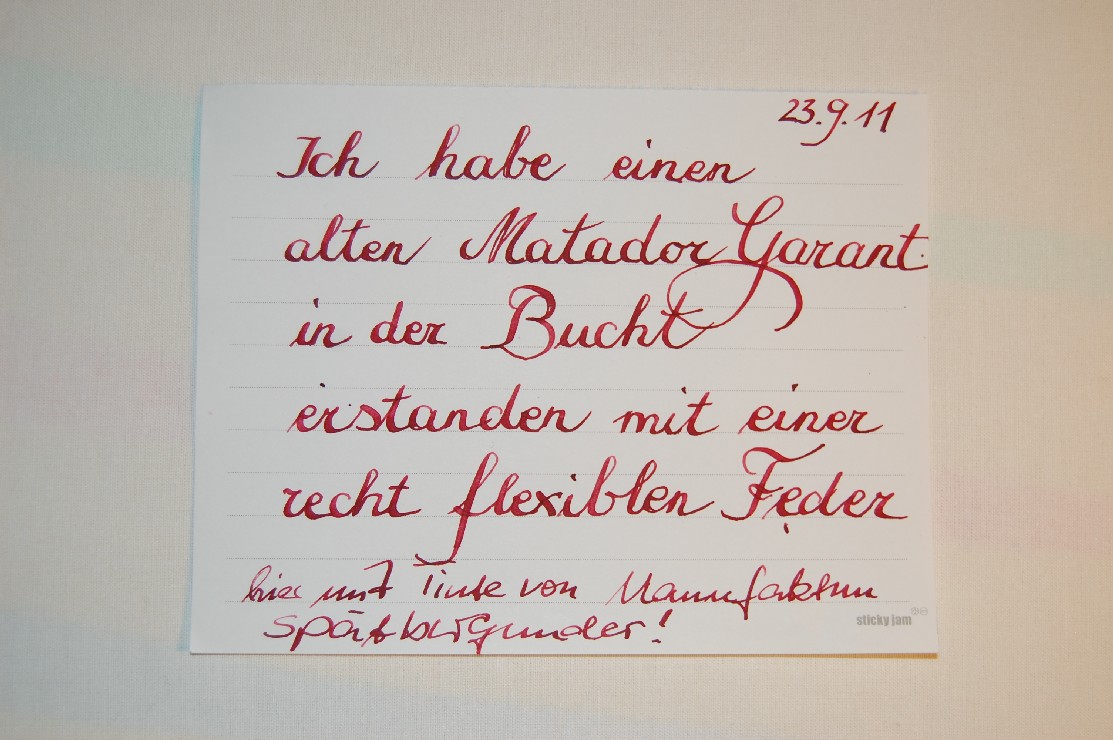 23.9.11
Ich habe einen
alten Matador Garant
in der Bucht
erstanden mit einer
recht flexiblen Feder
hier mit Tinte von Manufaktum
Spätburgunder!
sticky jam